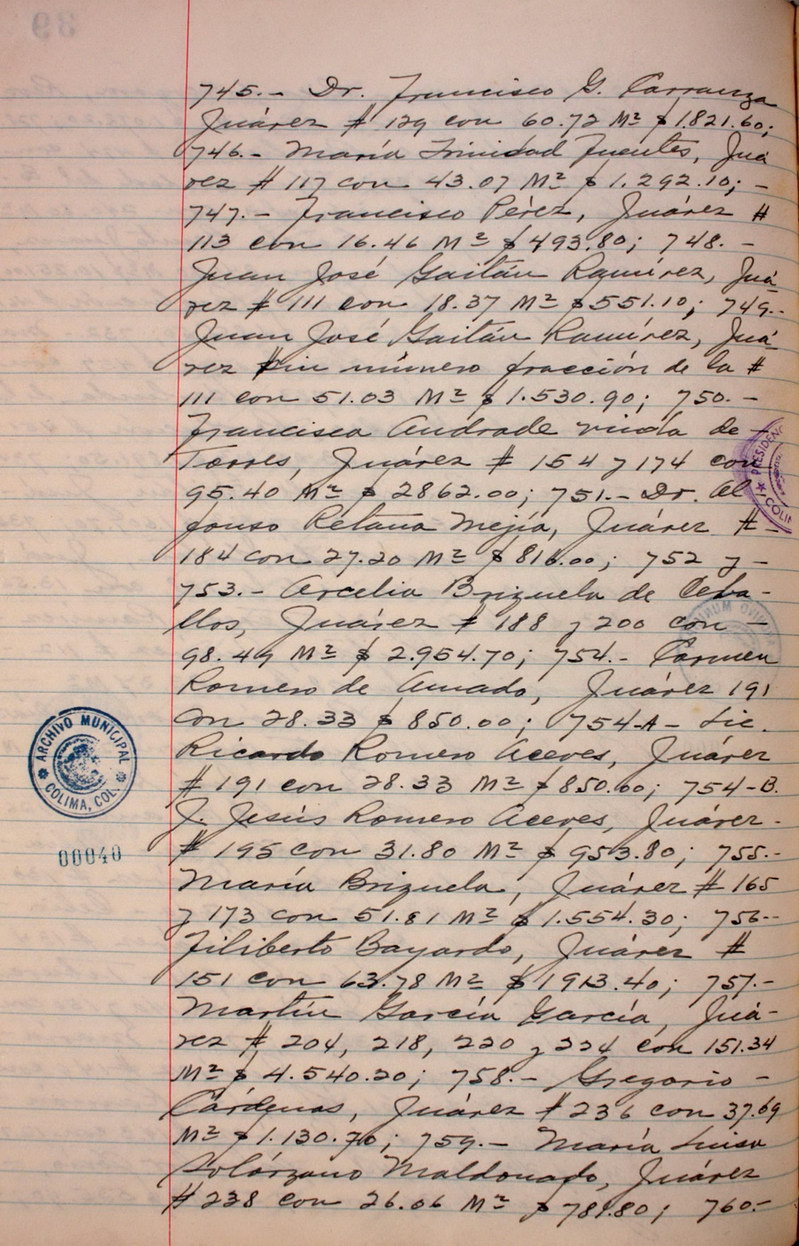 745.- Dr. Francisco G. Carranza
Juárez # 129 con 60.72 M² $1.821.60;
746.- María Trinidad Fuentes, Juá
rez # 117 con 43.07 M² $ 1.292.10; -
747.- Francisco Pérez, Juárez #
113 con 16.46 M² $493.80; 748.-
Juan José Gaitán Ramírez, Juá
rez # 111 con 18.37 M² $551.10; 749.-
Juan José Gaitán Ramírez, Juá
rez sin número fracción de la #
111 con 51.03 M² $ 1.530.90; 750.-
Francisca Andrade viuda de
Torres, Juárez # 154 y 174 con
95.40 M² $ 2862.00; 751.- Dr. Al
fonso Retana Mejía, Juárez # -
184 con 27.20 M² $816.00; 752 y -
753.- Arcelia Brizuela de Ceba-
llos, Juárez # 188 y 200 con -
98.49 M² $ 2.954.70; 754.- Carmen
Romero de Amado, Juárez 191
con 28.33 $850.00; 754-A- Lic.
Ricardo Romero Aceves, Juárez
# 191 con 28.33 M² $850.00; 754-B.
J. Jesús Romero Aceves, Juárez -
# 195 con 31.80 M² $ 953.80; 755.-
María Brizuela, Juárez # 165
y 173 con 51.81 M² $ 1.554.30; 756.-
Filiberto Bayardo, Juárez #
151 con 63.78 M² $1913.40; 757.-
Martín García García, Juá-
rez # 204, 218, 220 y 224 con 151.34
M² $ 4.540.20; 758.- Gregorio -
Cárdenas, Juárez # 236 con 37.69
M² $1.130.70; 759.- María Luisa
Solórzano Maldonado, Juárez
# 238 con 26.06 M² $781.80; 760.-
ARCHIVO MUNICIPAL
COLIMA, COL.
00040
PRESIDENC
COLI